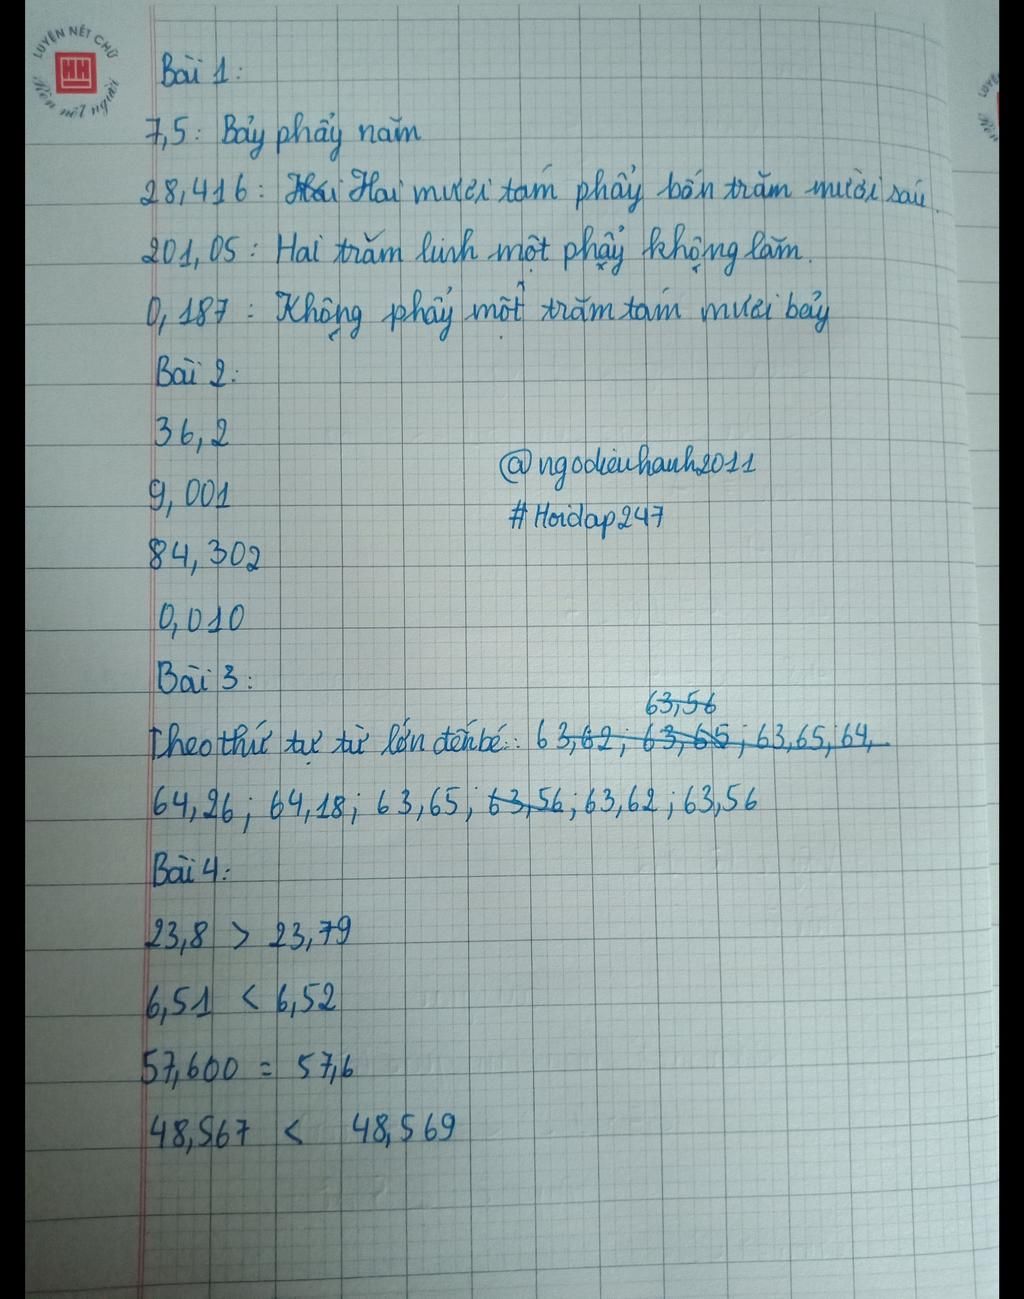 LUYỆN NÉT CHỮ
HH
Rèn nết người
Bài 1:
7,5: Bảy phẩy năm
28,416: Hai Hai mươi tám phẩy bốn trăm mười sáu.
201,05: Hai trăm linh một phẩy không lăm.
0,187: Không phẩy một trăm tám mươi bảy
Bài 2:
36,2
9,001
@ngodieuhanh2011
#Hoidap247
84,302
0,010
Bài 3:
63,56
Theo thứ tự từ lớn đến bé: 63,62; 63,65; 63,65; 64,
64,26; 64,18; 63,65; 63,56; 63,62; 63,56
Bài 4:
23,8 > 23,79
6,51 < 6,52
57,600 = 57,6
48,567 < 48,569